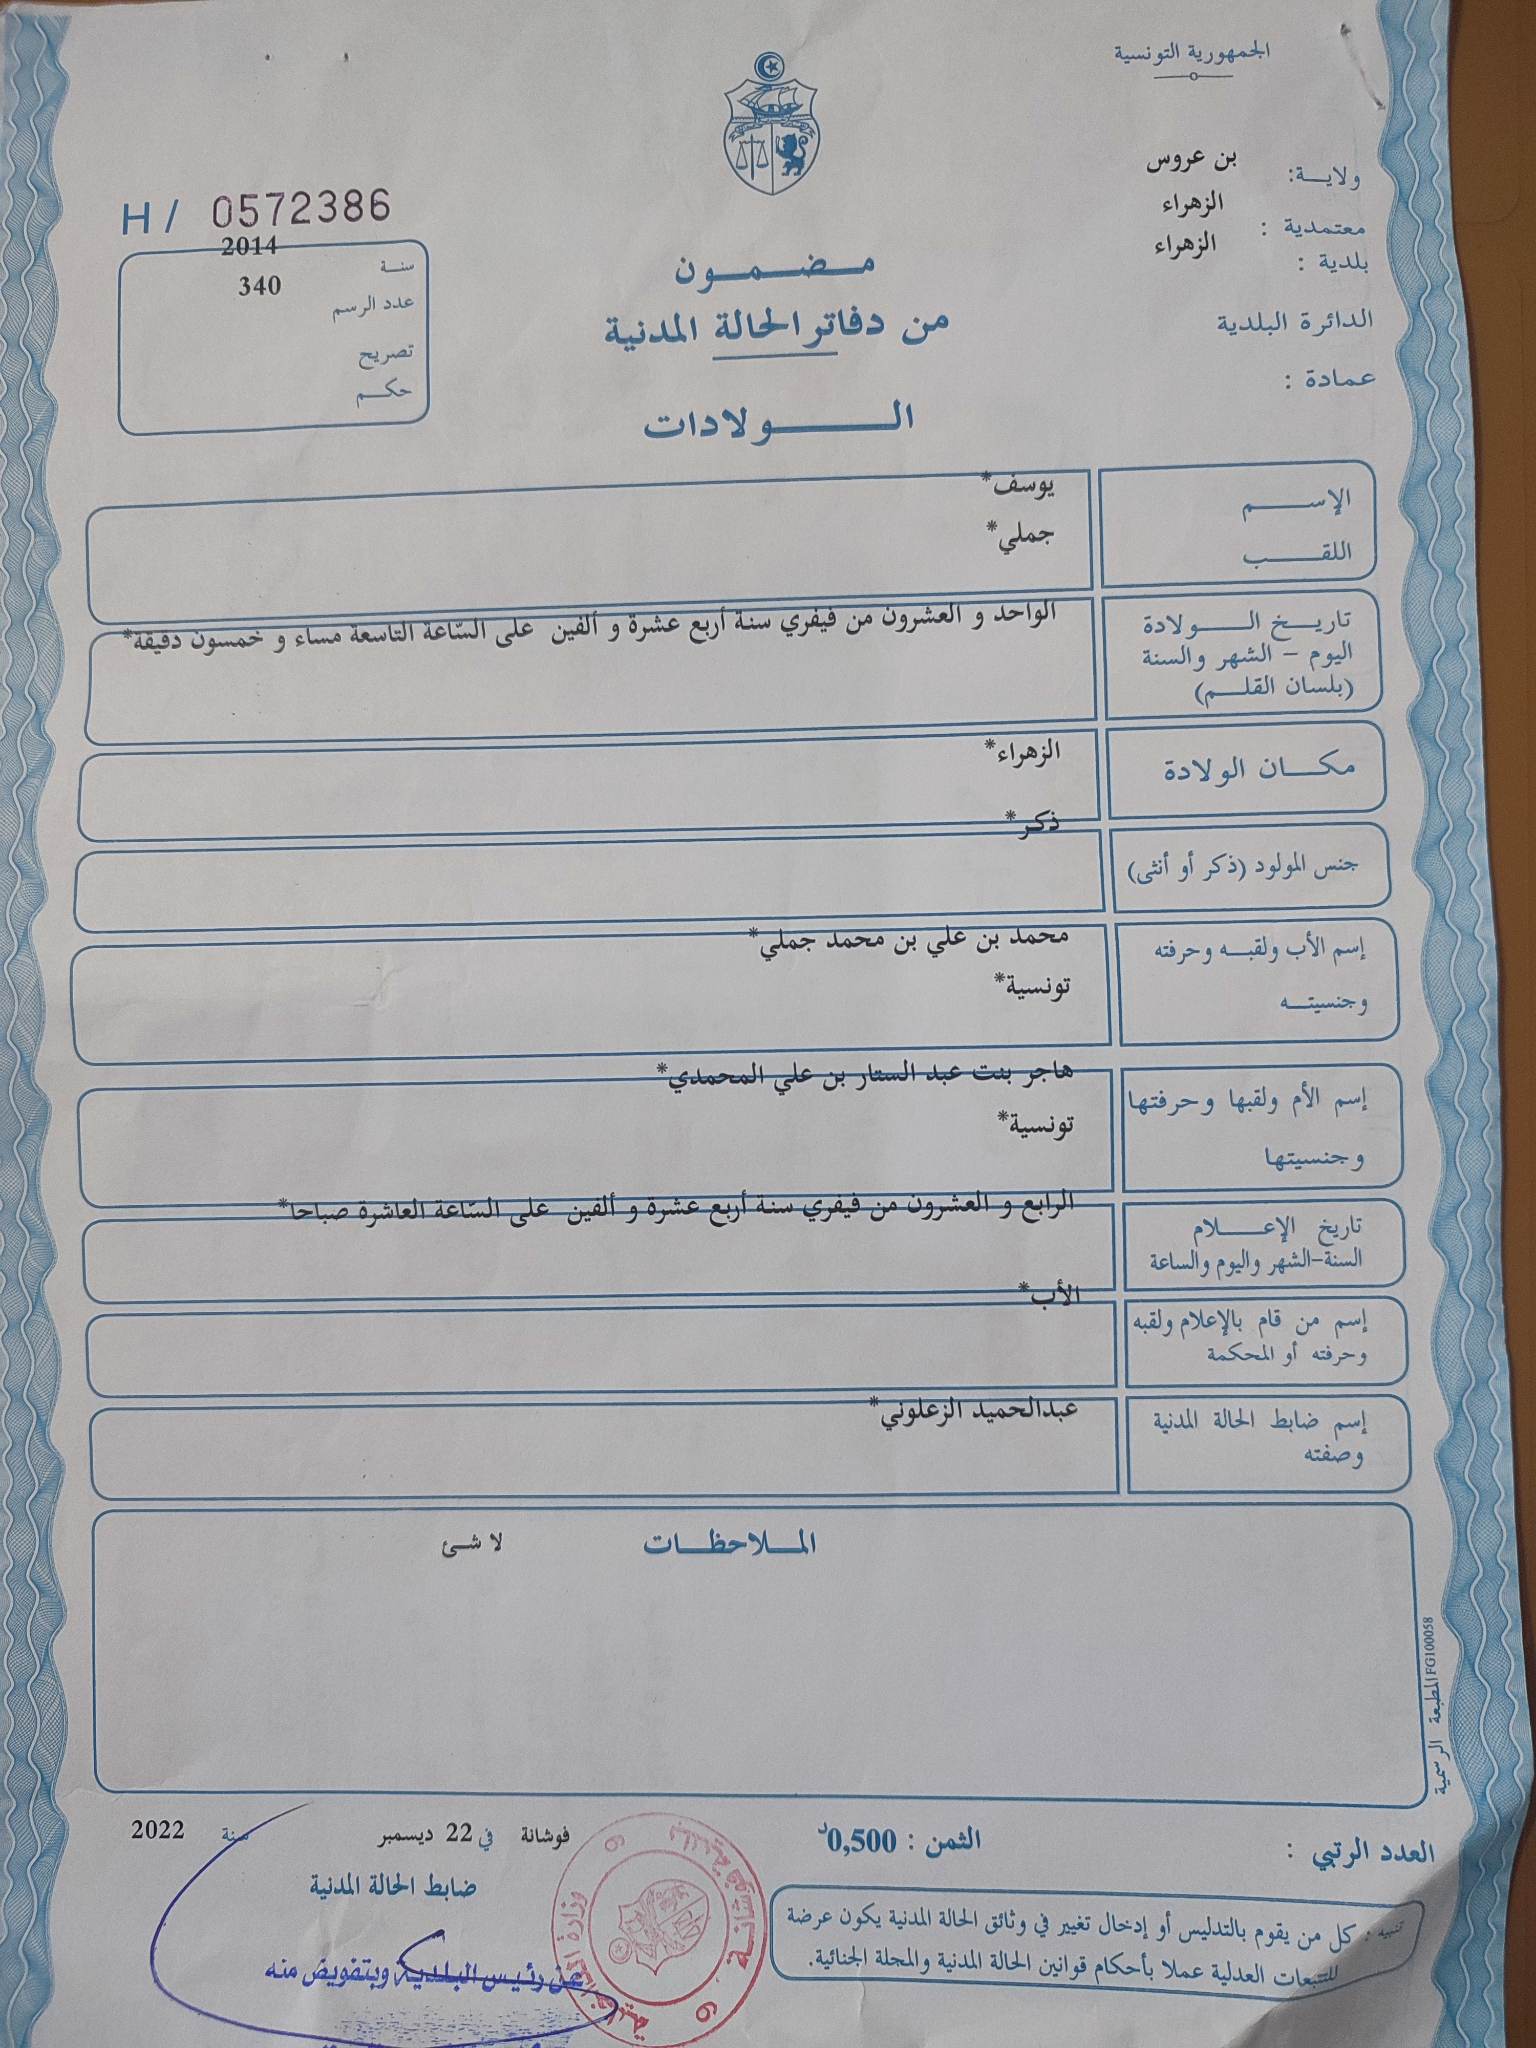 الجمهورية التونسية
ولاية: بن عروس
معتمدية : الزهراء
بلدية : الزهراء
الدائرة البلدية
عمادة :
H / 0572386
سنة 2014
عدد الرسم 340
تصريح
حكم
مضمون
من دفاتر الحالة المدنية
الولادات
الإسم يوسف*
اللقب جملي*
تاريخ الولادة الواحد و العشرون من فيفري سنة أربع عشرة و ألفين على السّاعة التاسعة مساء و خمسون دقيقة*
اليوم – الشهر والسنة
(بلسان القلم)
مكان الولادة الزهراء*
جنس المولود (ذكر أو أنثى) ذكر*
إسم الأب ولقبه وحرفته محمد بن علي بن محمد جملي*
وجنسيته تونسية*
إسم الأم ولقبها وحرفتها هاجر بنت عبد الستار بن علي المحمدي*
وجنسيتها تونسية*
تاريخ الإعلام الرابع و العشرون من فيفري سنة أربع عشرة و ألفين على السّاعة العاشرة صباحا*
السنة-الشهر واليوم والساعة
إسم من قام بالإعلام ولقبه الأب*
وحرفته أو المحكمة
إسم ضابط الحالة المدنية عبدالحميد الزعلوني*
وصفته
الملاحظات لا شئ
المطبعة الرسمية FG100058
العدد الرتبي :
الثمن : 0,500د
فوشانة في 22 ديسمبر سنة 2022
ضابط الحالة المدنية
عن رئيس البلدية وبتفويض منه
تنبيه : كل من يقوم بالتدليس أو إدخال تغيير في وثائق الحالة المدنية يكون عرضة
للتتبعات العدلية عملا بأحكام قوانين الحالة المدنية والمجلة الجنائية.